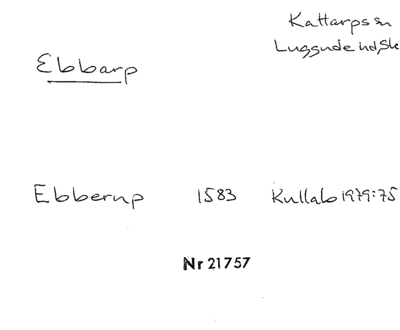 Kattarps sn
Luggude hd Sk
Ebbarp
Ebberup 1583 Kullabo 1979:75
Nr 21757